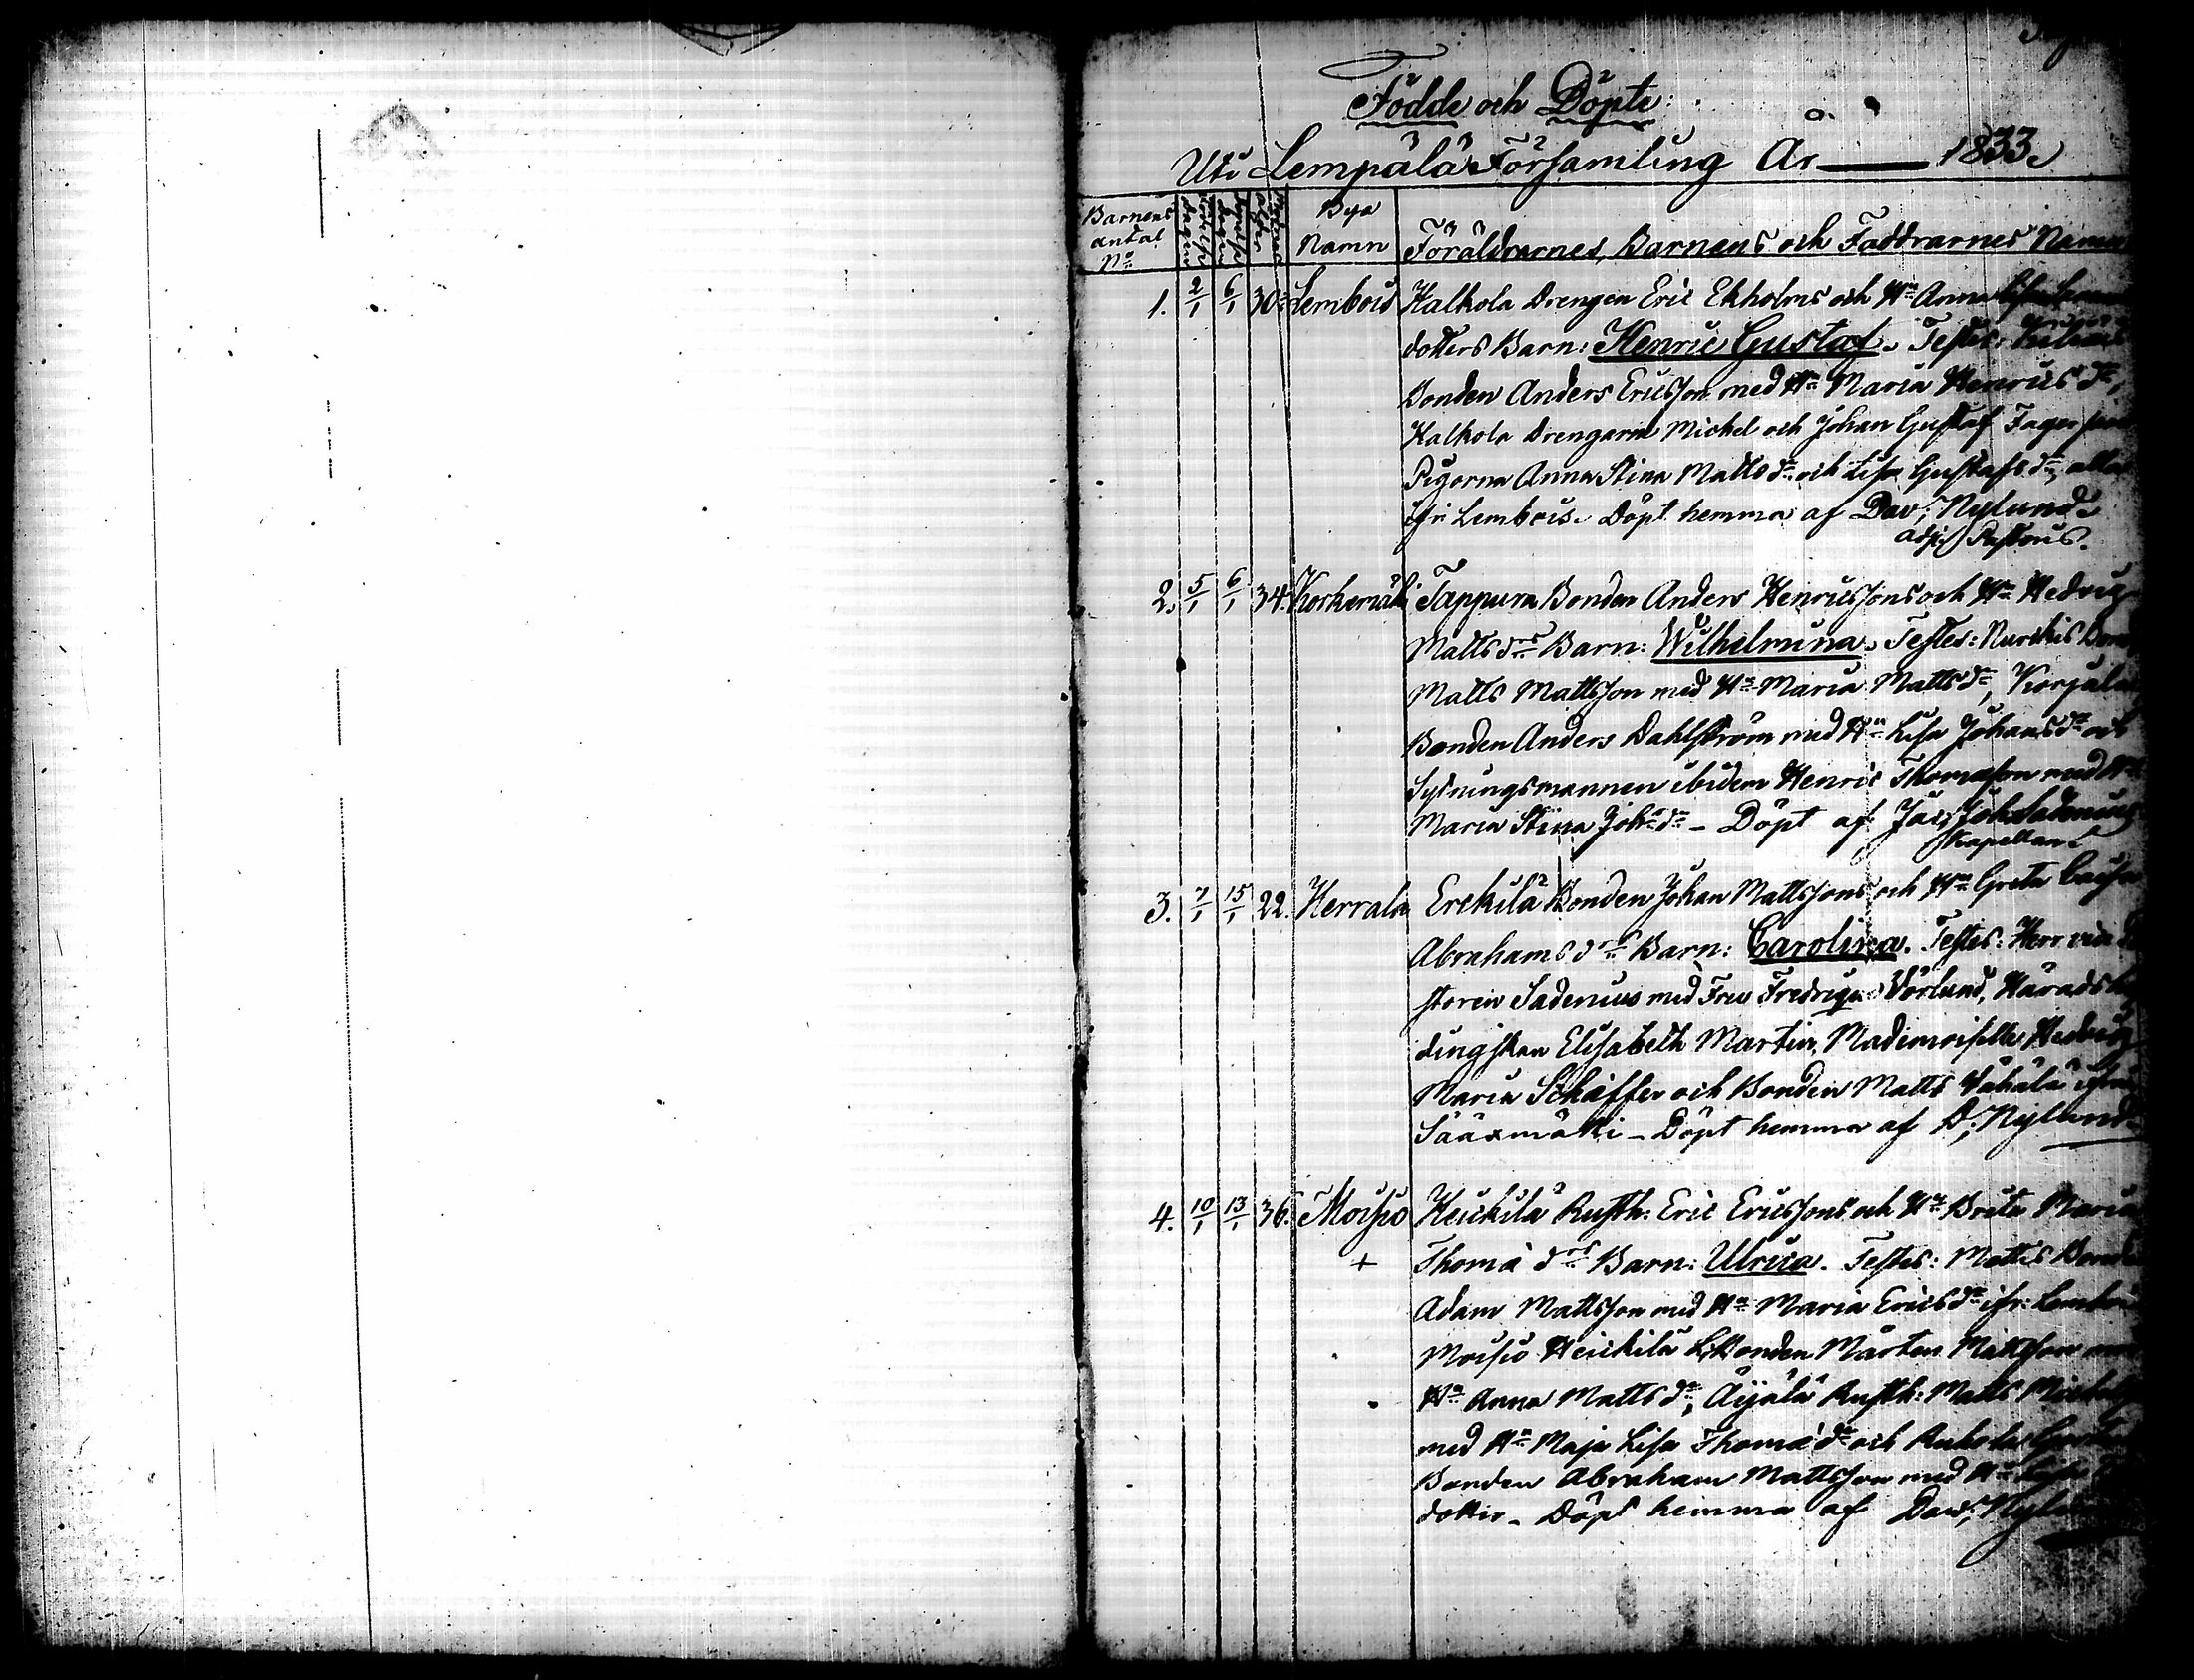 Födde och Döpte
Uti Lempälä Församling År 1833.
Barnens antal No
Bya Namn
Föräldrarnes, Barnens och Faddrarnes Namn
1. 2/1 6/1 30. Lembois Kalkola Drengen Eric Ekholms och Hu Anna Lisa
dotters Barn: Henric Gustaf. Testes:
Bonden Anders Ericsson med Hu Maria Henrics dr,
Kalkola Drengarne Michel och Johan Gustaf Fager
Pigorna Anna Stina Matts dr och Lisa Gustafs dr, alla
ifr. Lembois. Döpt hemma af Dav; Nylund.
adj: Pastoris.
2. 5/1 6/1 34. Korkemäki Tappura Bonden Anders Henricssons och Hu Hedvig
Matts drs Barn: Wilhelmina. Testes: Nurckis
Matts Mattsson med Hu Maria Matts dr, Korjula
Bonden Anders Dahlström med Hu Lisa Johans dr och
Sytningsmannen ibidem Henric Thomasson med Hu
Maria Stina Joh: dr – Döpt af Jac; Joh: Sadenius
Kapellan.
3. 7/1 15/1 22. Herrala Erckilä Bonden Johan Mattssons och Hu Greta Caisa
Abrahams drs Barn: Carolina. Testes: Herr
storen Sadenius med Fru Fredrique Vörlund, Härads
dingskan Elisabeth Martin, Mademoiselle Hedvig
Maria Schäffer och Bonden Matts Vähälä ifrån
Sääxmäki – Döpt hemma af D; Nylund.
4. 10/1 13/1 36. Moisio Heickilä Rusth: Eric Ericssons och Hu Brita Maria
+ Thomæ drs Barn: Ulrica. Testes: Mattis
Adam Mattsson med Hu Maria Erics dr ifr: Lembois
Moisio Heickilä L.Bonden Mårten Mattsson
Hu Anna Matts dr, Äijälä Rusth: Matts
med Hu Maja Lisa Thomæ dr och
Bonden Abraham Mattsson med Hu
dotter – Döpt hemma af Dav;